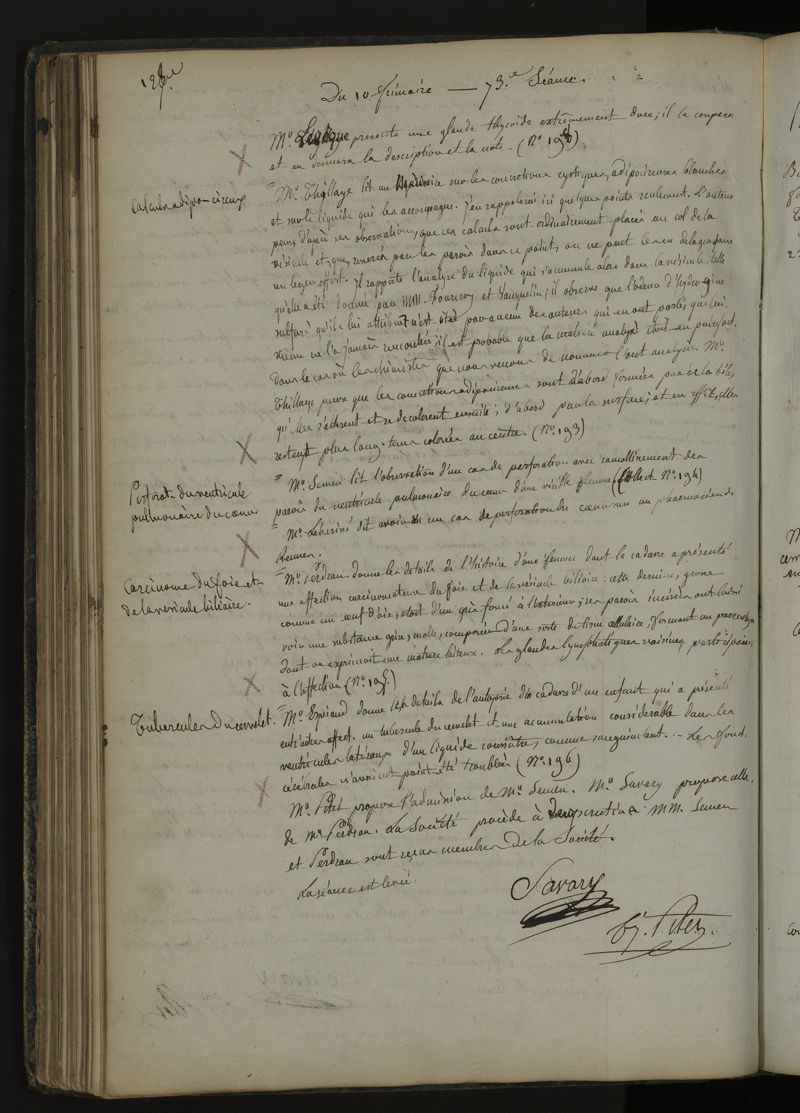 Du 10 frimaire — 73.e Séance.
Mr. Levêque presente une glande thyroide extrêmement dure; il la coupera
et en donnera la description et la note. (No. 198)
Calculs adipo-cireux
Mr. Thillaye lit un Mémoire sur les concretions cystiques, adipocireuses blanches
et sur le liquide qui les accompagne. J'en rappelerai ici quelques points seulement. L'auteur
pense d'après ses observations, que ces calculs sont ordinairement placés au col de la
vésicule et que, resserrés par les parois dans ce point, on ne peut les en déloger sans
un leger effort. Il rapporte l'analyse du liquide qui s'accumule alors dans la vésicule, telle
qu'elle a été donnée par MM. Fourcroy et Vauquelin; il observe que l'odeur d'hydrogène
sulfuré qu'ils lui attribuent n'est citée par aucun des auteurs qui en ont parlé, que lui
même ne l'a jamais rencontrée; il est probable que la matière analysée était en putrefact.
dans le cas où les chimistes que nous venons de nommer l'ont analysée. Mr.
Thillaye pense que les concretions adipocireuses sont d'abord formées par de la bile,
qu'elles s'altèrent et se décolorent ensuite; d'abord par la surface; et en effet, elles
restent plus long-tems colorées au centre. (No. 193)
Perforat. du ventricule
pulmonaire du cœur.
Mr. Semen lit l'observation d'un cas de perforation avec ramollissement des
parois du ventricule pulmonaire du cœur d'une vieille femme (No. 194)
dit avoir vu un cas de perforation du cœur sur un pharmacien de
Rennes.
Carcinome du foie et
de la vesicule biliaire.
Mr. Perdrau donne les details de l'histoire d'une femme dont le cadavre a présenté
une affection carcinomateuse du foie et de la vésicule biliaire: cette derniere, grosse
comme un œuf d'oie, etoit d'un gris foncé à l'extérieur; ses parois incisées ont laissé
voir une substance grise, molle, composée d'une sorte de tissu cellulaire, formant un
dont on exprimoit une matiere laiteuse. Les glandes lymphatiques voisines
à l'affection (No. 195.)
Tubercules du cervelet.
Mr. donne les details de l'autopsie du cadavre d'un enfant qui a présenté
entr'autres affect. un tubercule du cervelet et une accumulation considérable dans les
ventricules latéraux d'un liquide roussâtre, comme sanguinolent. — Les fonct.
cérébrales n'avoient point été troublées (No. 196)
Mr. Pitet propose l'admission de Mr. Semen. Mr. Savary propose celle
de Mr. Perdrau. La Société procède à deux scrutins. MM. Semen
et Perdrau sont reçus membres de la Société.
La séance est levée.
Savary
Pitet